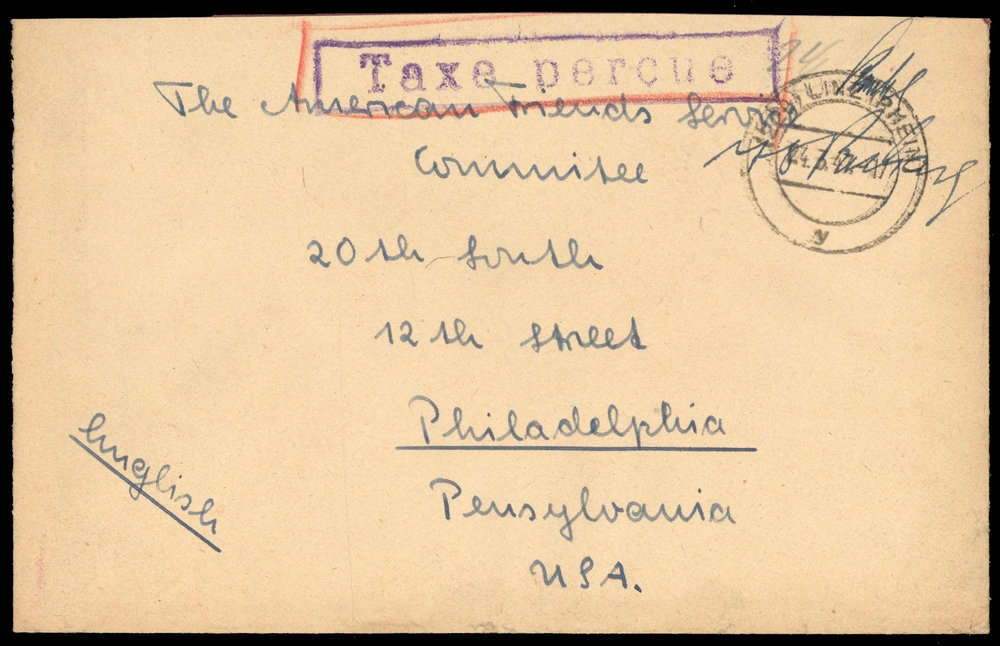 Taxe percue
The American Friends Service
Committee
20th South
12th Street
Philadelphia
Pensylvania
USA.
English
LINZ RHEIN
y